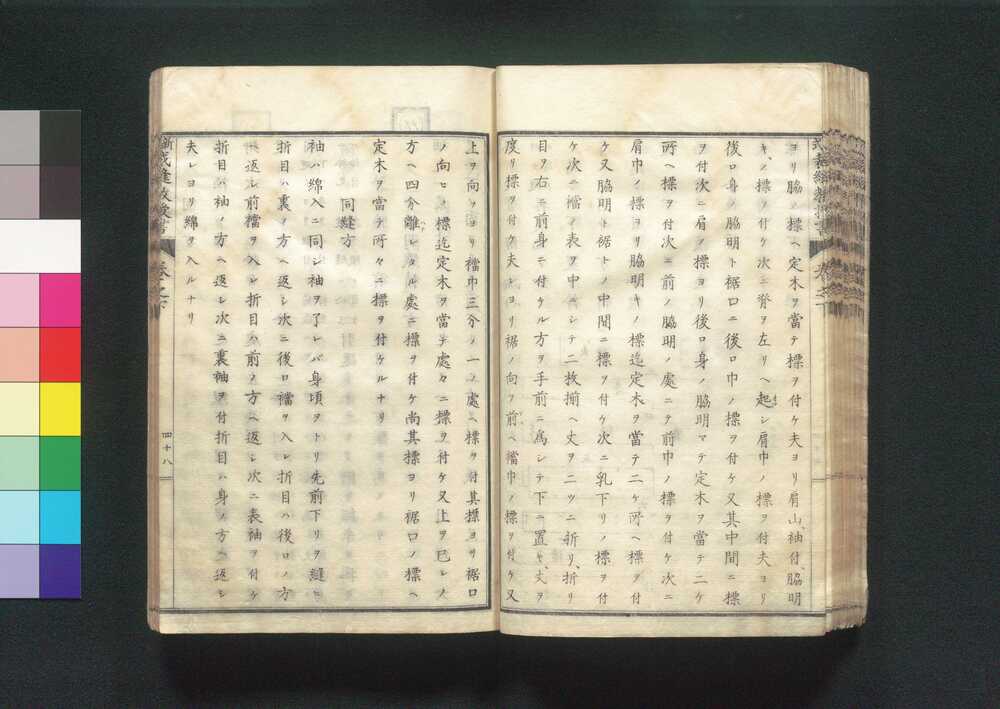 ヨリ脇ノ標ヘ定木ヲ當テ標ヲ付ケ夫ヨリ肩山、袖付、脇明
キノ標ヲ付ケ次ニ脊ヲ左リヘ起シ肩巾ノ標ヲ付夫ヨリ
後ロ身ノ脇明ト裾口ニ後ロ巾ノ標ヲ付ケ又其中間ニ標
ヲ付次ニ肩ノ標ヨリ後ロ身ノ脇明マテ定木ヲ當テ二ケ
所ヘ標ヲ付次ニ前ノ脇明ノ處ニテ前巾ノ標ヲ付ケ次ニ
肩巾ノ標ヨリ脇明キノ標迄定木ヲ當テ二ケ所ヘ標ヲ付
ケ又脇明ト裾トノ中間ニ標ヲ付ケ次ニ乳下リノ標ヲ付
ケ次ニ襠ノ表ヲ中ニシテ二枚揃ヘ丈ヲ二ツニ折リ、折リ
目ヲ右ニ前身ニ付ケル方ヲ手前ニ爲シテ下ニ置キ、丈ヲ
度リ標ヲ付ケ夫レヨリ裾ノ向ヲ前ヘ襠巾ノ標ヲ付ケ又
上ヲ向フヨリ襠巾三分ノ一ノ處ヘ標ヲ付其標ヨリ裾口
ノ向ヒノ標迄定木ヲ當テ處々ニ標ヲ付ケ又上ヲ巳レノ
方ヘ四分離レタル處ニ標ヲ付ケ尚其標ヨリ裾口ノ標ヘ
定木ヲ當テ所々ニ標ヲ付ケルナリ
同縫方
袖ハ綿入ニ同シ袖ヲ了レバ身頃ヲトリ先前下リヲ縫ヒ
折目ハ裏ノ方ヘ返シ次ニ後ロ襠ヲ入レ折目ハ後ロノ方
ヘ返シ前襠ヲ入レ折目ハ前ノ方ヘ返シ次ニ表袖ヲ付ケ
折目ハ袖ノ方ヘ返シ次ニ裏袖ヲ付折目ハ身ノ方ヘ返シ
夫レヨリ綿ヲ入ルナリ
卷之下
四十八